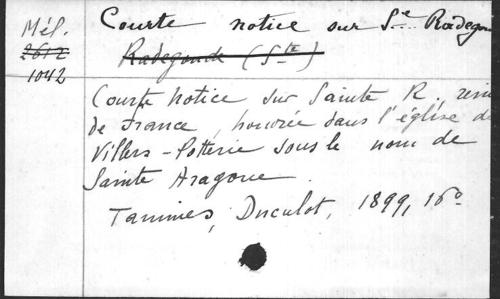 Mél.
2612
1042
Courte notice sur Ste Radegon
Radegonde (Ste)
Courte notice sur Sainte R., reine
de France, honorée dans l'église de
Villers-Potterie sous le nom de
Sainte Aragone.
Tamines, Duculot, 1899, 16o